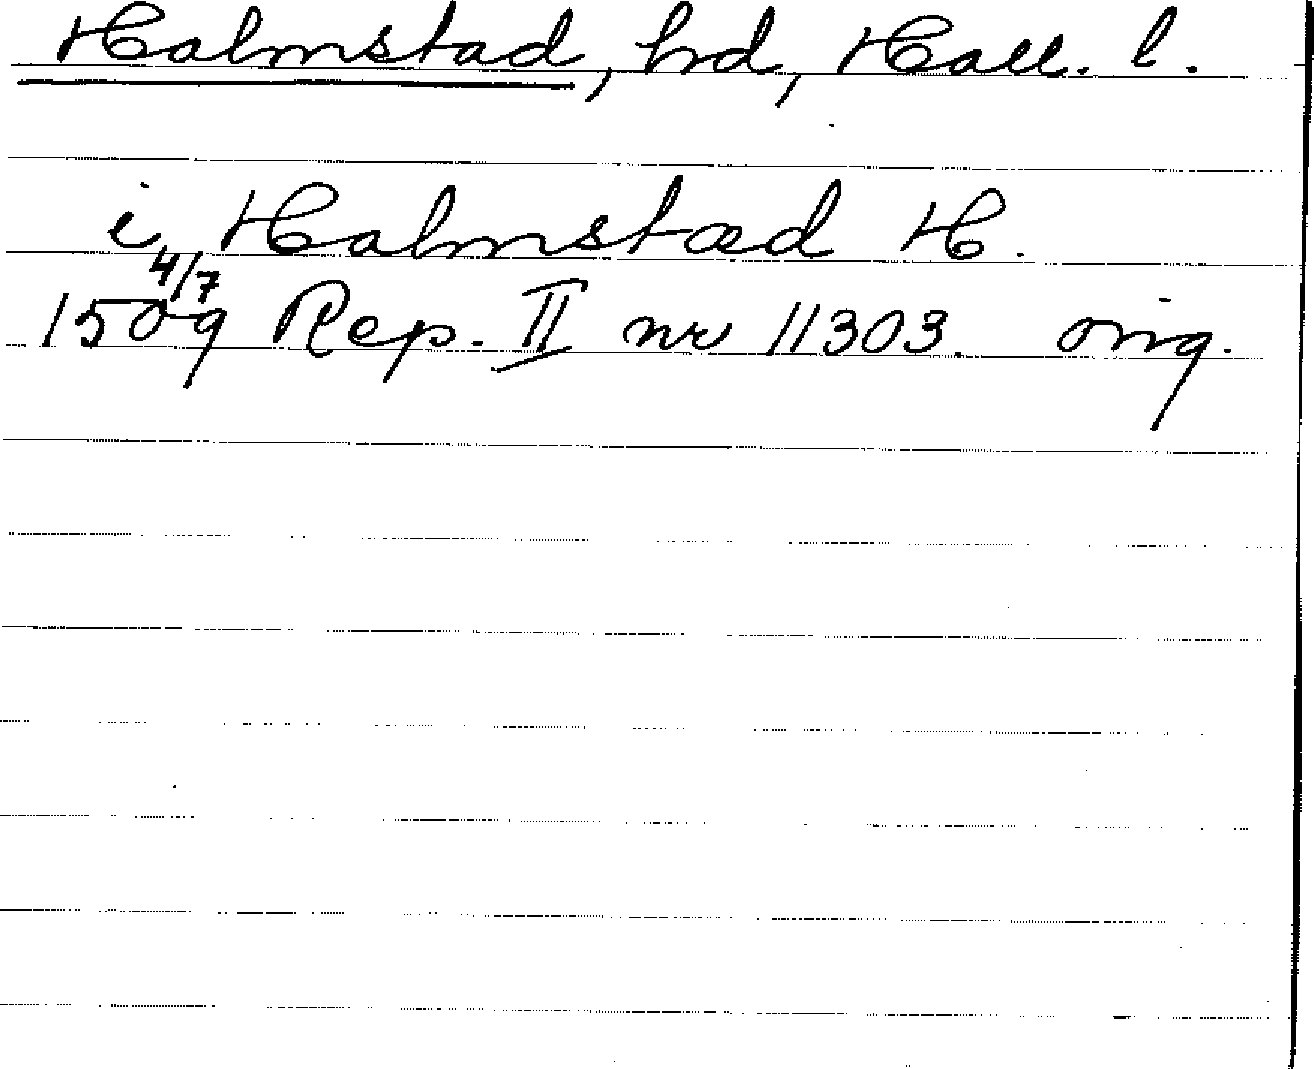 Halmstad, hd, Hall. l.
i Halmstæd H.
4/7
1509 Rep. II nr 11303. orig.